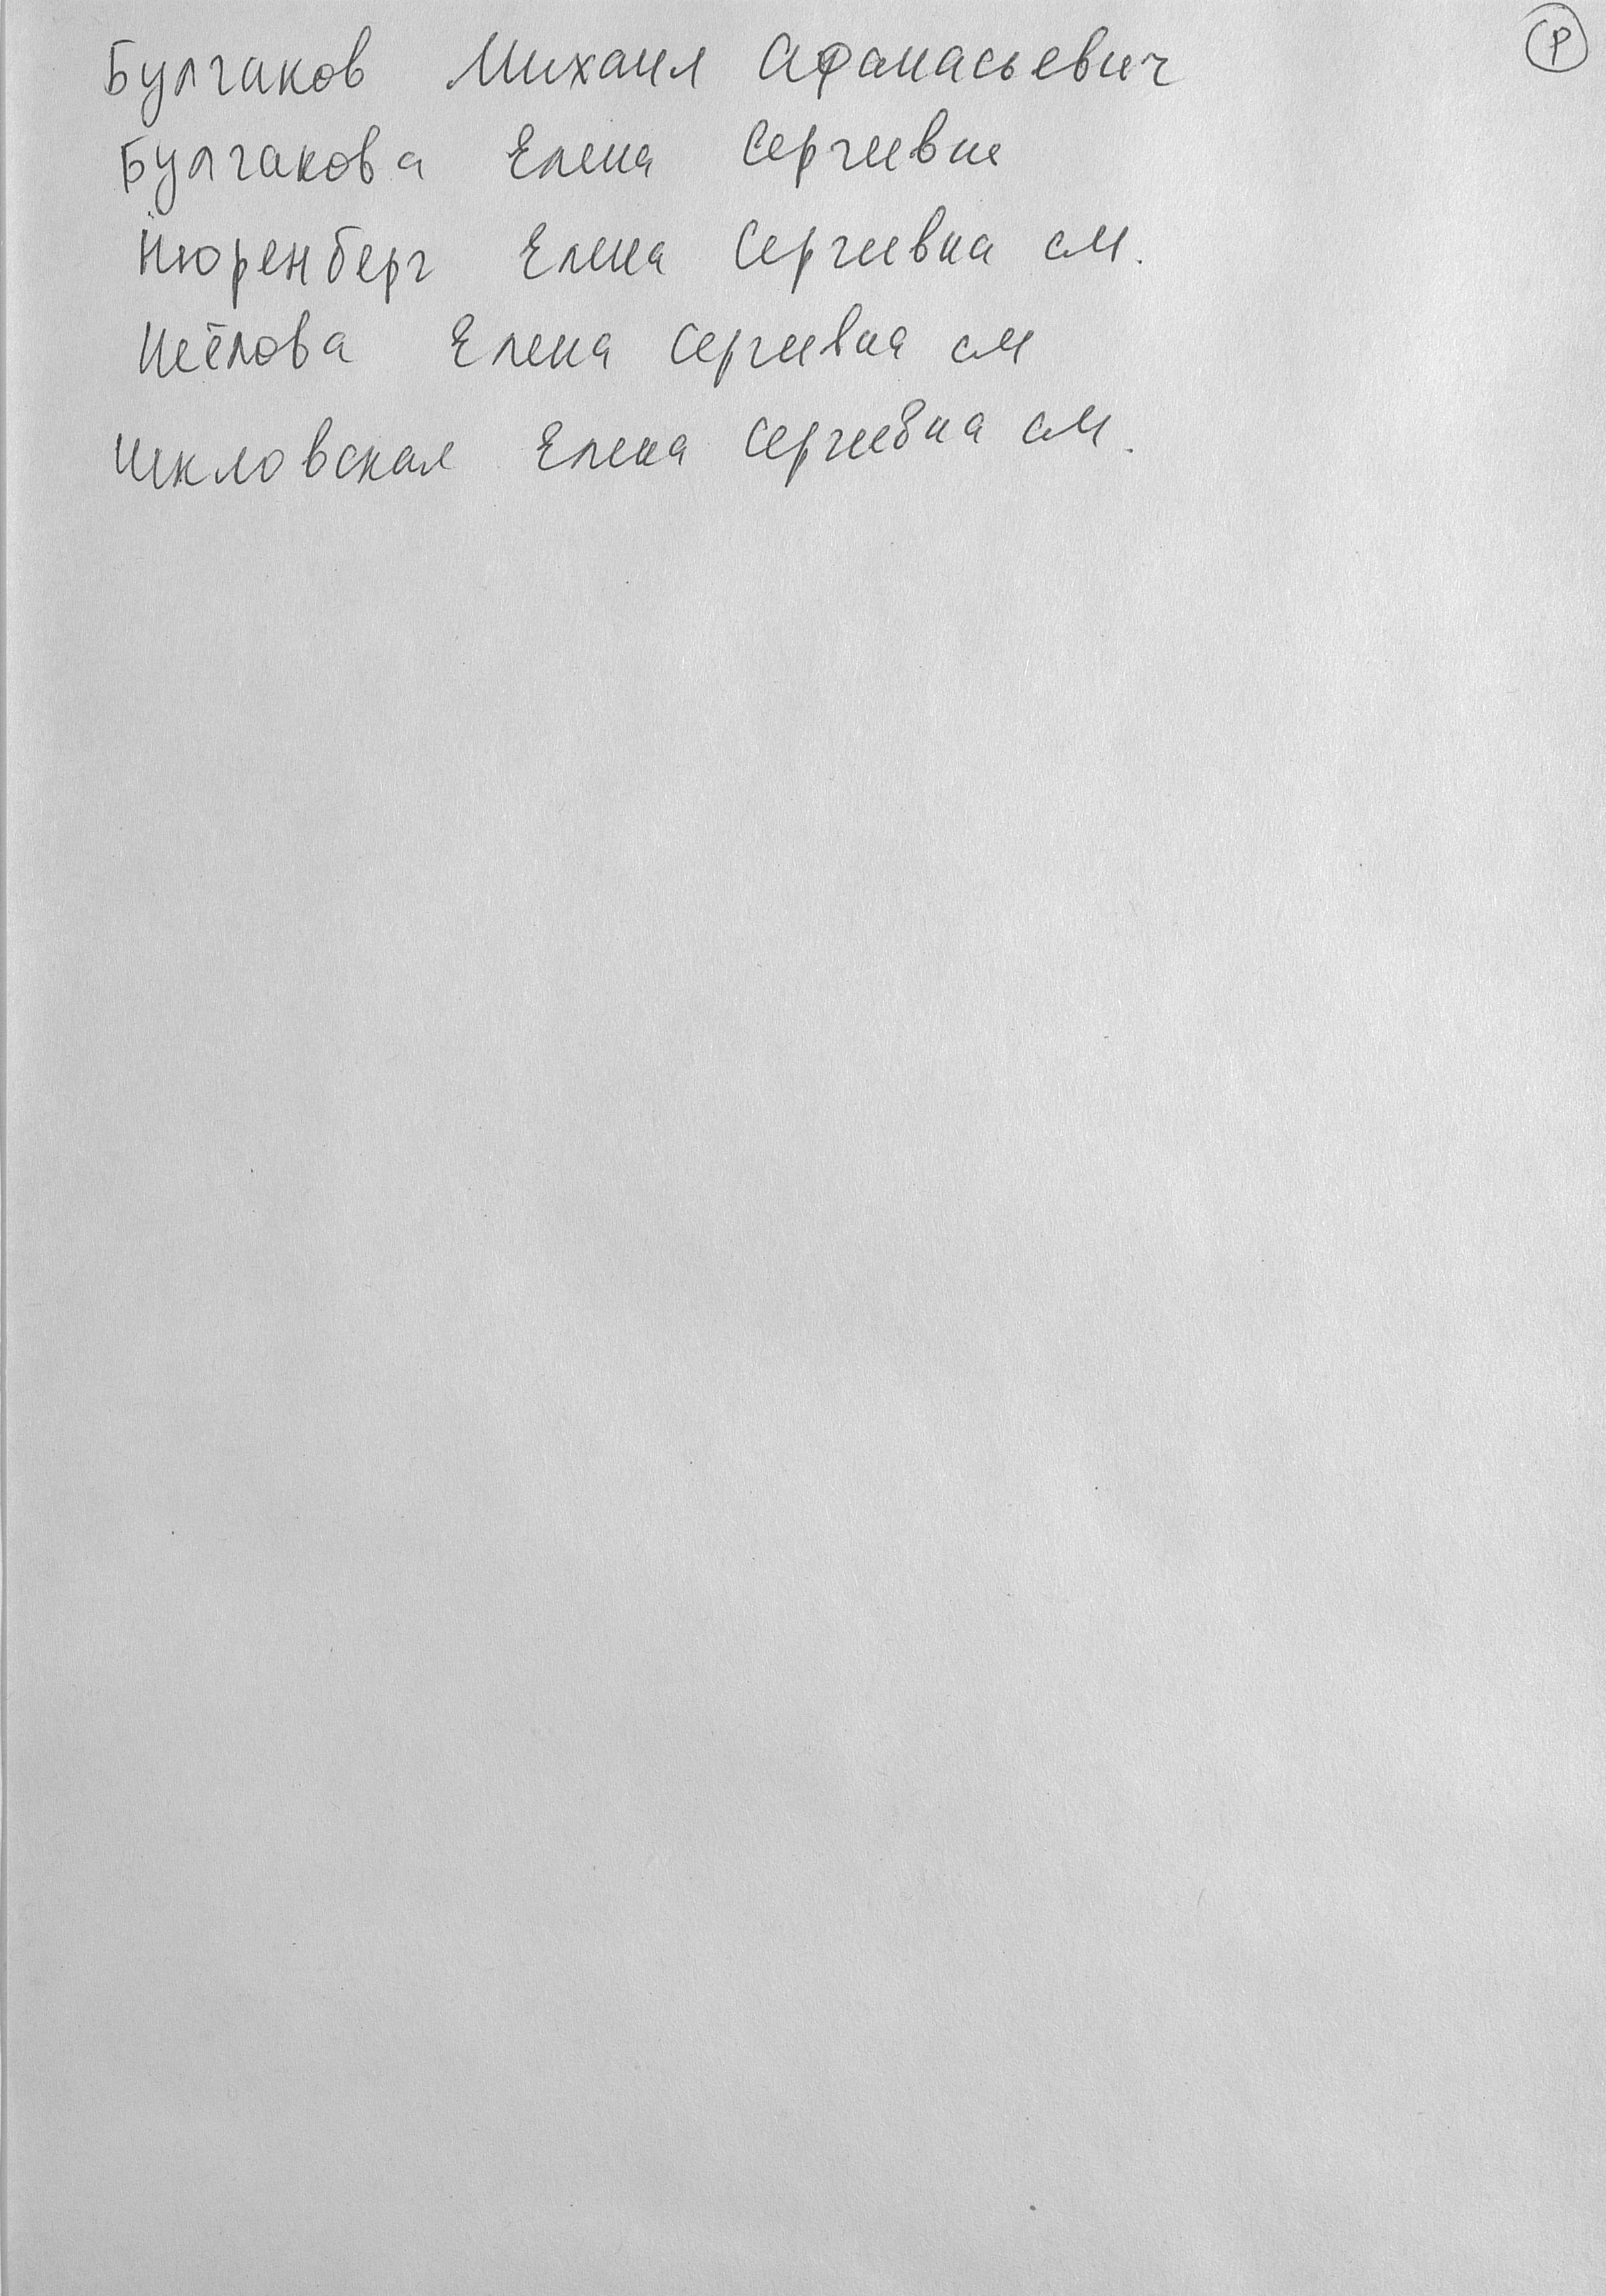 Р
Булгаков Михаил Афанасьевич
Булгакова Елена Сергеевна
Нюренберг Елена Сергеевна см.
Неёлова Елена Сергеевна см
Шиловская Елена Сергеевна см.